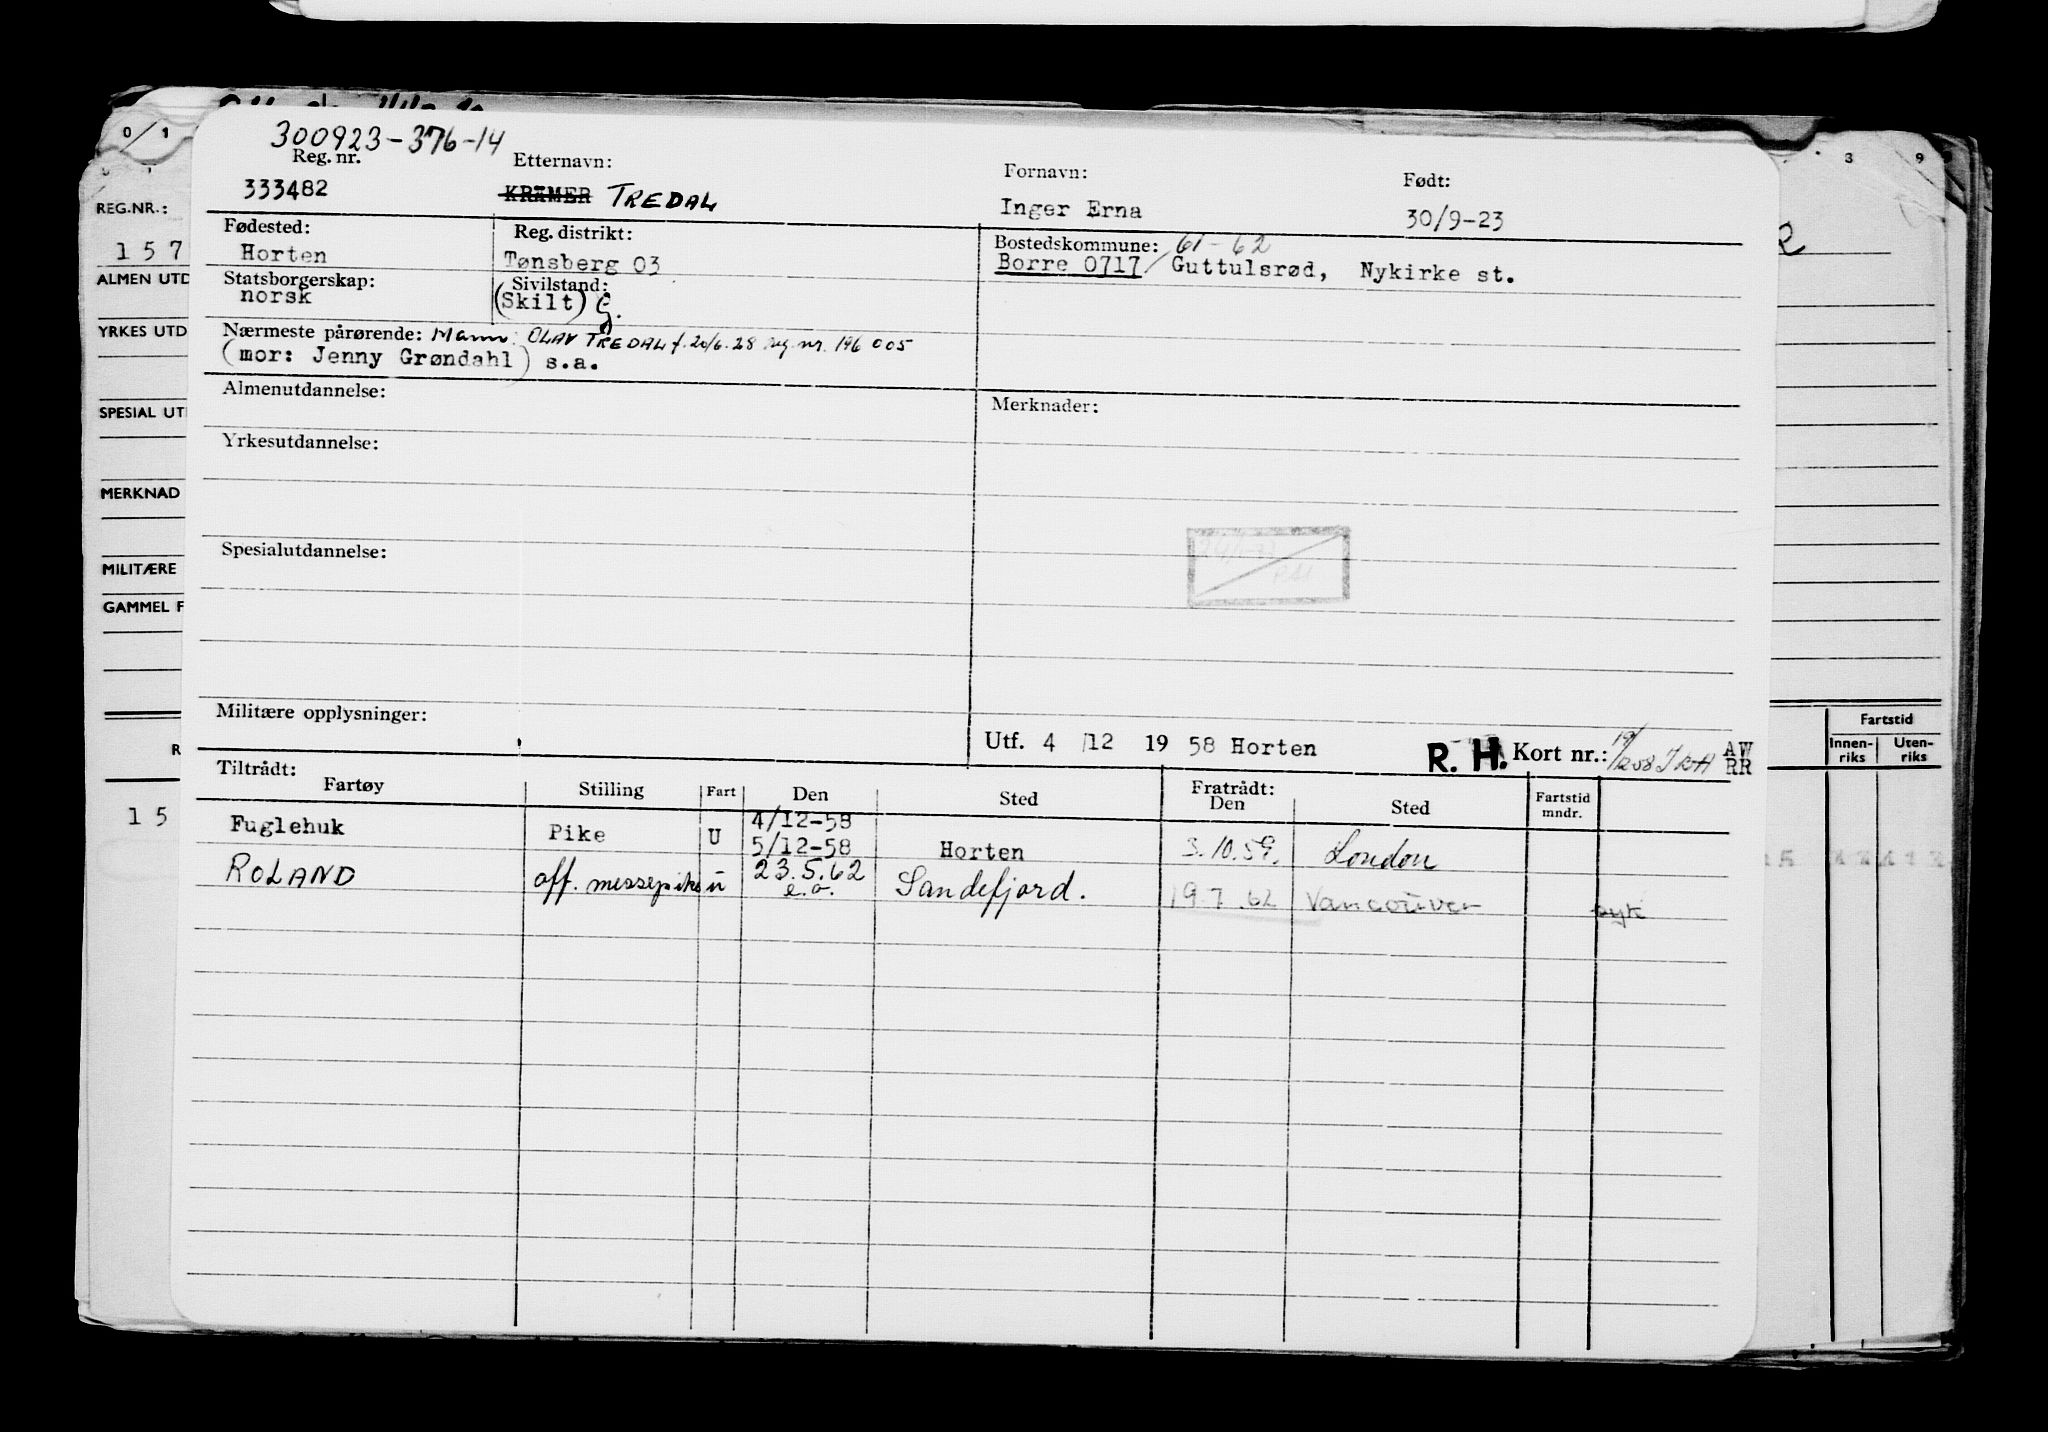 300923-376-14
Reg. nr. Etternavn: Fornavn: Født:
333482 KRÄMER TREDAL Inger Erna 30/9-23
Fødested: Reg. distrikt: Bostedskommune: 61-62
Horten Tønsberg 03 Borre 0717/ Guttulsrød, Nykirke st.
Statsborgerskap: Sivilstand:
norsk (Skilt) G.
Nærmeste pårørende: Mann: OLAV TREDAL f. 20/6-28 reg. nr. 196 005
(mor: Jenny Grøndahl) s.a.
Almenutdannelse: Merknader:
Yrkesutdannelse:
Spesialutdannelse:
Militære opplysninger:
Utf. 4/12 19 58 Horten R. H. Kort nr.: AW RR
Tiltrådt: Fratrådt:
Fartøy Stilling Fart Den Sted Den Sted Fartstid mndr.
Fuglehuk Pike U 4/12-58
5/12-58 Horten 3.10.59. London
ROLAND off. messepike u 23.5.62 Sandefjord. 19.7.62 Vancouver syk
e.o.
0/1 3 9
REG.NR.:
1 5 7
ALMEN UTD
YRKES UTD
SPESIAL UT
MERKNAD
MILITÆRE
GAMMEL F
R
1 5
Fartstid
Innen-riks Uten-riks